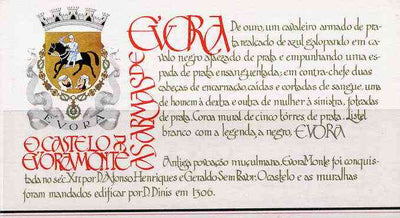 EVORA
O CASTELO DE
EVORAMONTE
AS ARMAS DE
EVORA
De ouro, um cavaleiro armado de pra-
ta realçado de azul, galopando em ca-
valo negro ajaezado de prata e empunhando uma es-
pada de prata ensanguentada; em contra-chefe duas
cabeças de encarnação, caídas e cortadas de sangue, uma
de homem à dextra e outra de mulher à sinistra, toucadas
de prata. Coroa mural de cinco tôrres de prata. Listel
branco com a legenda, a negro, EVORA
Antiga povoação muçulmana, Evora Monte foi conquis-
tada no séc. XII por D. Afonso Henriques e Geraldo Sem Pavor. O castelo e as muralhas
foram mandados edificar por D. Dinis em 1306.